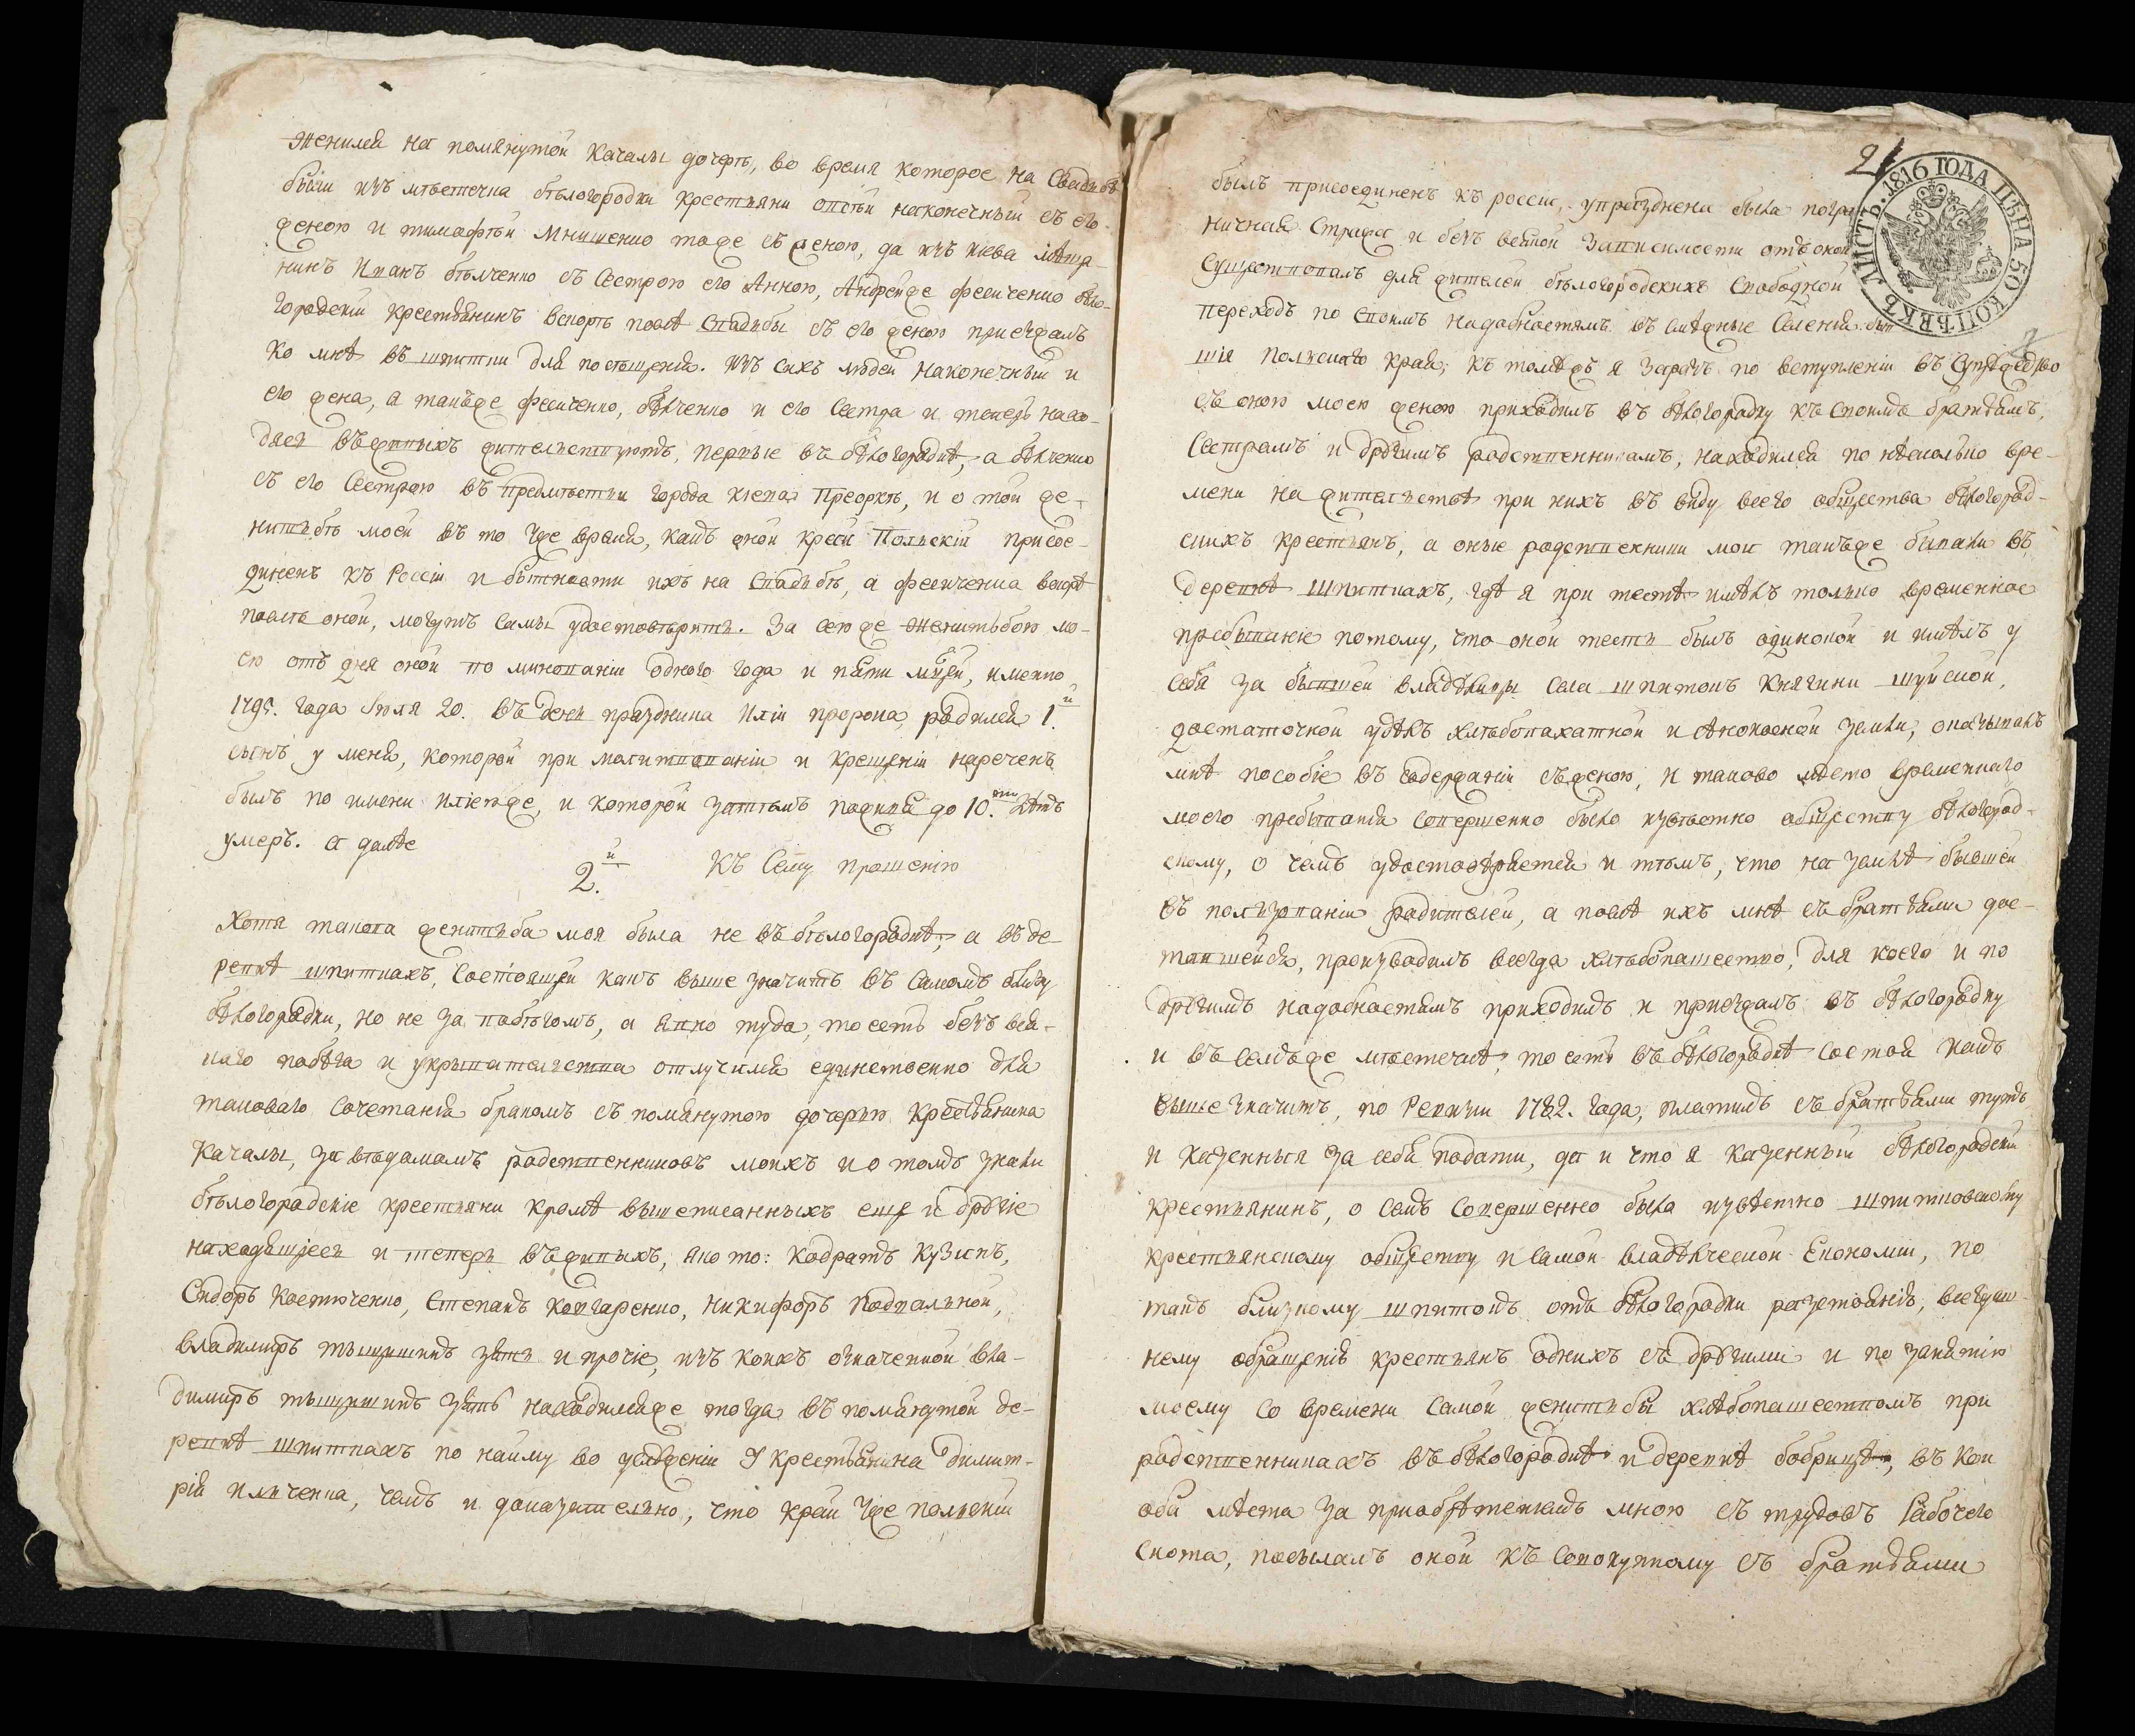 женился на помянутой Качалы дочерѣ, во время которое на Свадьбѣ
были изъ мѣстечка бѣлогородки крестьяни Наконечный съ его
женою и тимофѣй Мнишенко тоже съ женою, да изъ Кіева мѣща-
нинъ Иванъ бѣлченко съ Сестрою его Анною, Андрейже фесиченко бѣло-
городскій крестьянинъ вскорѣ послѣ Свадьбы съ его женою приезжалъ
ко мнѣ въ шпитки для посѣщенія. изъ сихъ людей наконечный и
его жена, а такъже фесиченко, бѣлченко и его Сестра и теперь нахо-
дясь въживыхъ жителствуютъ, первые въ бѣлогородкѣ, а бѣлченко
съ его Сестрою въ предмѣстіи города кіева Преоркѣ, и о той же-
нитьбѣ моей въ то уже время, какъ оной край Польскій присое-
диненъ къ Россіи и бытности ихъ на Свадьбѣ, а фесиченка вскорѣ
послѣ оной, могутъ самы удостовѣрить. За сею же женитьбою мо-
ею отъ дня оной по минованіи одного года и пяти мцей, именно
1795. года Іюля 20. въ день праздника Иліи пророка, родился 1.й
сынъ у меня, которой при молитвованіи и крещеніи нареченъ
былъ по имени иліею же, и которой затѣмъ поживя до 10.ти лѣтъ
умеръ. а далѣе
2.й Къ Сему прошенію
Хотя такова женитьба моя была не въ бѣлогородкѣ, а въ де-
ревнѣ шпиткахъ, Состоящей какъ выше значитъ въ Самомъ близу
бѣлогородки, но не за побѣгомъ, а явно туда, то есть безъ вся-
каго побѣга и укрывателства отлучился единственно для
таковаго Сочетанія бракомъ съ помянутою дочерью крестьянина
Качалы, за вѣдамамъ родственниковъ моихъ и о томъ знали
бѣлогородскіе крестьяни кромѣ вышеписанныхъ еще и другіе
находящіеся и теперь въживыхъ, яко то: Кодратъ Кузивъ,
Сидоръ Костюченко, Степанъ Кончаренко, Никифоръ Подпальной,
владимиръ тышушинъ зять и прочіе, изъ коихъ означенной вла-
димиръ тышушинъ зять находилсяже тогда въ помянутой де-
ревнѣ шпиткахъ по найму во услуженіи У крестьянина Димит-
рія Ильченка, чемъ и доказателно, что край уже польскій
21
ЛИСТЪ. 1816 ГОДА ЦѢНА 50 КОПѢЕКЪ
былъ присоединенъ къ россіи, упразднена была погра-
ничная Стража и безъ всякой Зависимости отъ оной
Существовалъ для жителей бѣлогородскихъ Свободной
переходъ по Своимъ надобностямъ въ смѣжные Селенія быв-
шія польскаго края, къ томужъ я заразъ по вступленіи въ Супружество
съ оною моею женою приходилъ въ бѣлогородку къ Своимъ братьямъ,
Сестрамъ и другимъ родственникамъ, находился по нѣсколько вре-
мени на жителствѣ при нихъ въ виду всего общества бѣлогород-
скихъ крестьянъ, а оные родственники мои такъже бывали въ
деревнѣ Шпиткахъ, гдѣ я при тестѣ имѣлъ только временное
пребываніе потому, что оной тесть былъ одинокой и имѣлъ у
себя за бывшей владѣлицы села шпитокъ Княгини шуйской,
достаточной удѣлъ хлѣбопахатной и сѣнокосной земли, оказывалъ
мнѣ пособіе въ содержаніи съ женою, и таково мѣсто временнаго
моего пребыванія совершенно было извѣстно обществу бѣлогород-
скому, о чемъ удостовѣряется и тѣмъ, что на землѣ бывшей
въ пользованіи родителей, а послѣ ихъ мнѣ съ братьями дос-
тавшейся, производилъ всегда хлѣбопашество, для коего и по
другимъ надобностямъ приходилъ и приезжалъ въ бѣлогородку
и въ семъже мѣстечкѣ, то есть въ бѣлогородкѣ состоя какъ
выше значитъ, по Ревизіи 1782. года, платилъ съ братьями тутъ
и казенныя за себя подати, да и что я казенный бѣлогородскій
крестьянинъ, о семъ Совершенно было извѣстно шпитковскому
крестьянскому обществу и самой владѣлческой Економіи, по
такъ близкому шпитокъ отъ бѣлогородки разстоянію, всегдаш-
нему обращенію крестьянъ однихъ съ другими и по занятію
моему со времени самой женитьбы хлѣбопашествомъ при
родственникахъ въ бѣлогородкѣ и деревнѣ бобрицѣ, въ кои
оби мѣста за приобрѣтеніемъ мною съ трудовъ рабочего
скота, посылалъ оной къ совокупному съ братьями